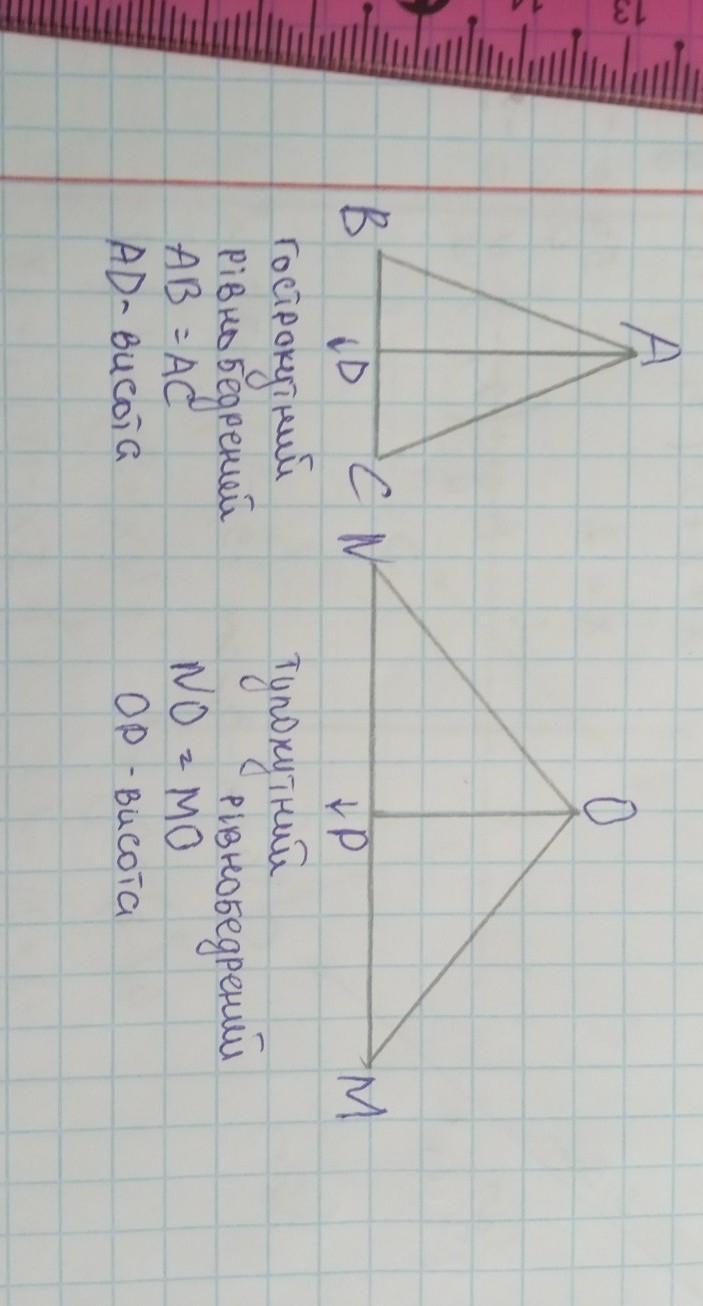 A
B
↓D
C
Гострокутний
рівнобедрений
AB = AC
AD - висота
O
N
↓P
M
Тупокутний
рівнобедрений
NO = MO
OP - висота
13